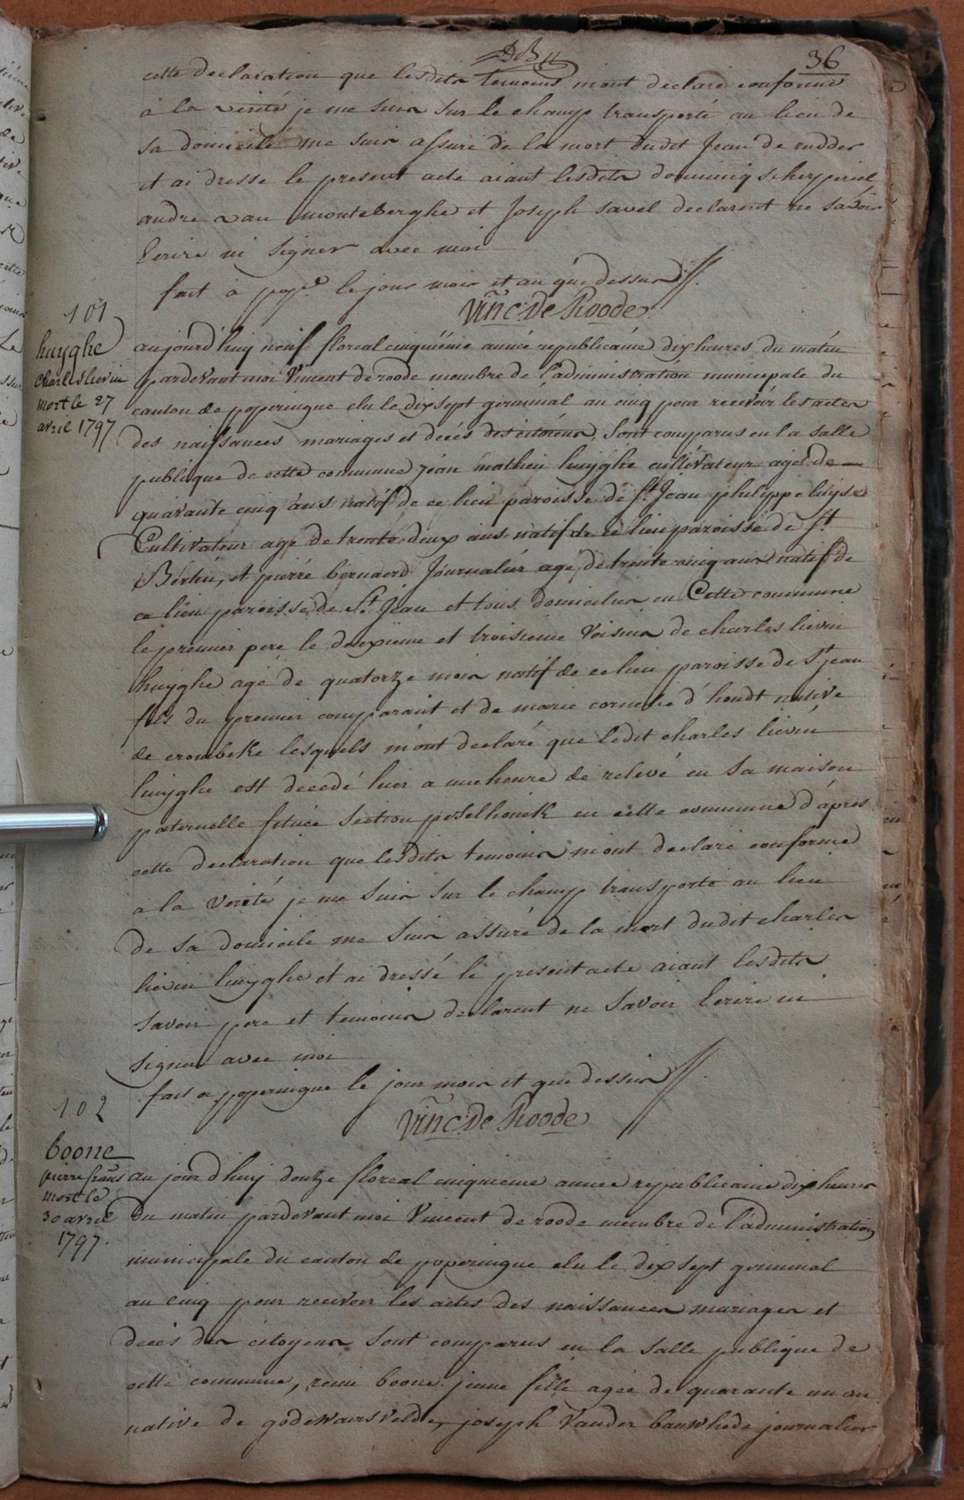 36
cette declaration que lesdits temoins m'ont declaré conforme
à la verité je me suis sur le champ transporté au lieu de
sa domicile me suis assuré de la mort dudit Jean de rudder
et ai dressé le present acte aiant lesdits dominiq
andre van monteberghe et Joseph savel declarent ne savoir
Ecrire ni Signer avec moi
fait a pope le jour mois et an que dessus
Vinc: De Roode
101
huyghe
Charles lievin
mort le 27
avril 1797
aujourd'huy neuf floreal cinquiéme année républicaine dix heures du matin
pardevant moi Vincent de roode membre de l'administration municipale du
canton de poperingue elu le dix sept germinal an cinq pour recevoir les actes
des naissances mariages et décés des citoiens, Sont comparus en la salle
publique de cette commune jéan mathieu huyghe cultivateur agé de
quarante cinq ans natif de ce lieu paroisse de St Jean philippe
Cultivateur agé de trente deux ans natif de ce lieu paroisse de St
Bertin, et pierre bernaerd Journalier agé de trente cinq ans natif de
ce lieu paroisse de St Jean et tous domicilies en Cette commune
le premier pere le deuxieme et troisieme Voisins de charles lievin
huyghe agé de quatorze mois natif de ce lieu paroisse de St jean
fils du premier comparant et de marie cornelie d'hondt native
de crombeke lesquels m'ont declaré que ledit charles lievin
huyghe est decedé hier a une heure de relevé en Sa maison
paternelle situëe Section peselhouck en cette commune d'apres
cette declaration que lesdits temoins m'ont declaré conforme
a la verité je me suis sur le champ transporté au lieu
de sa domicile me suis assuré de la mort dudit charles
lievin huyghe et ai dressé le present acte aiant lesdits
savoir pere et temoins declarent ne savoir Ecrire ni
signer avec moi
fait a poperingue le jour mois et que dessus
Vinc: De Roode
102
boone
pierre frans
mort le
30 avril
1797.
au jourd'huy doutze floreal cinquieme année republicaine dix heures
Du matin pardevant moi Vincent de roode membre de l'administration
municipale du canton de poperingue elu le dix sept germinal
an cinq pour recevoir les actes des naissances mariages et
décés des citoyens sont comparus en la salle publique de
cette commune, boone jeune fille agée de quarante un an
native de godewaersvelde, joseph Vander bauwhede journalier